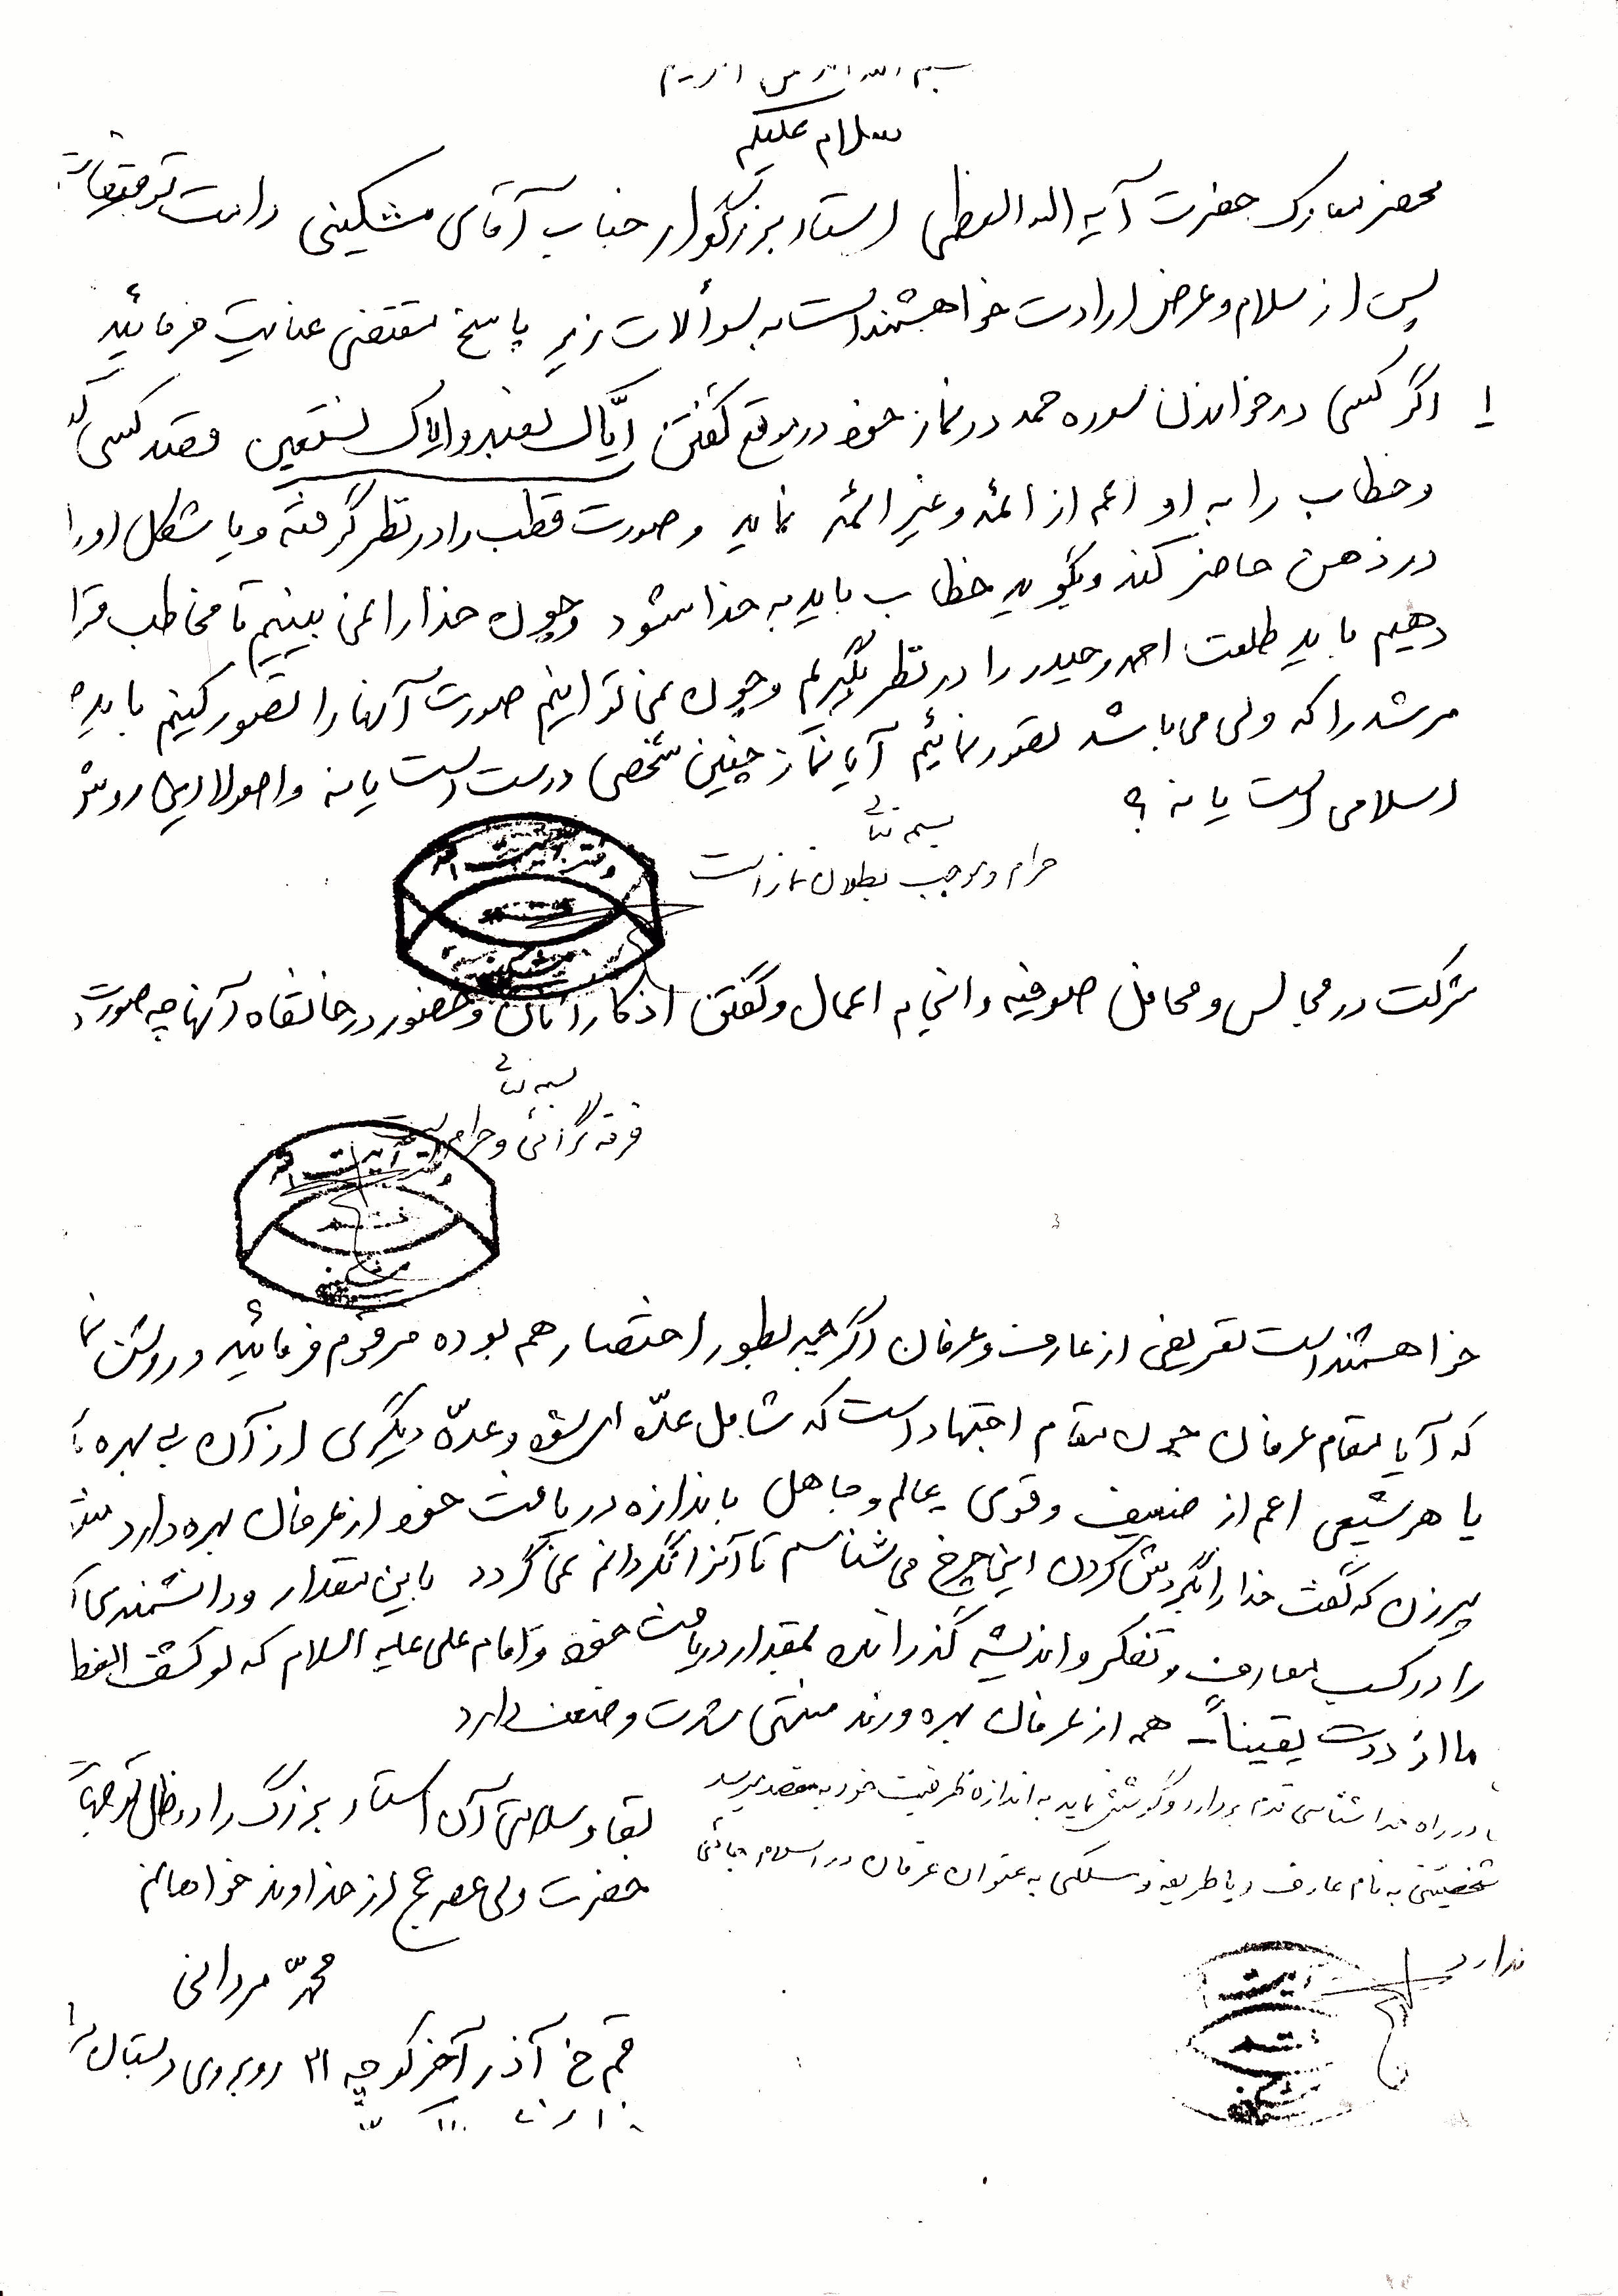 سلام علیکم
محضر مبارک حضرت آیه الله العظمی استاد بزرگوار جناب آقای مشکینی دامت توفیقات
پس از سلام و عرض ارادت خواهشمند است به سوألات زیر پاسخ مقتضی عنایت فرمائید
۱ اگر کسی در خواندن سوره حمد در نماز خود در موقع گفتن ایّاک نعبد و ایاک نستعین قصد کسی کند
و خطاب را به او اعم از ائمه و غیر ائمه نماید و صورت قطب را در نظر گرفته و یا شکل او را
در ذهن حاضر کند و بگوید خطاب باید به خدا شود و چون خدا را نمی بینیم تا مخاطب قرا
دهیم باید طلعت احمد و حیدر را در نظر بگیریم و چون نمی توانیم صورت آنها را تصور کنیم باید
مرشد را که ولی می باشد تصور نمائیم آیا نماز چنین شخصی درست است یا نه و اصولا این روش
اسلامی است یا نه ؟
بسمه تعالی
حرام و موجب بطلان نماز است
شرکت در مجالس و محافل صوفیه و انجام اعمال و گفتن اذکار آنان و حضور در خانقاه آنها چه صورت د
بسمه تعالی
فرقه گرائی و حرام است
خواهشمند است تعریفی از عارف و عرفان اگر چه بطور اختصار هم بوده مرقوم فرمائید و روشن نما
که آیا مقام عرفان چون مقام اجتهاد است که شامل عدّه ای بشود و عدّه دیگری از آن بی بهره
یا هر شیعی اعم از ضعیف و قوی عالم و جاهل باندازه دریافت خود از عرفان بهره دارد مثلا
پیرزن که گفت خدا را بگردش کردن این چرخ می شناسم تا آنرا نگردانم نمی گردد باین مقدار و دانشمندی
را در کسب معارف و تفکر و اندیشه گذرانده بمقدار دریافت خود و امام علی علیه السلام که لو کشف الغطا
ما ازددت یقیناً همه از عرفان بهره ورند منتهی شدت و ضعف دارد
در راه خدا شناسی قدم بردارد و کوشش نماید به اندازه ظرفیت خود به مقصد میرسد
شخصیتی به نام عارف و یا طریقه و مسلکی به عنوان عرفان در اسلام جائی
ندارد
بقا و سلامتی آن استاد بزرگ را در ظل توجهات
حضرت ولی عصر عج از خداوند خواهانم
محمدّ مردانی
قم خ آذر آخر کوچه ۳۱ روبروی دبستان